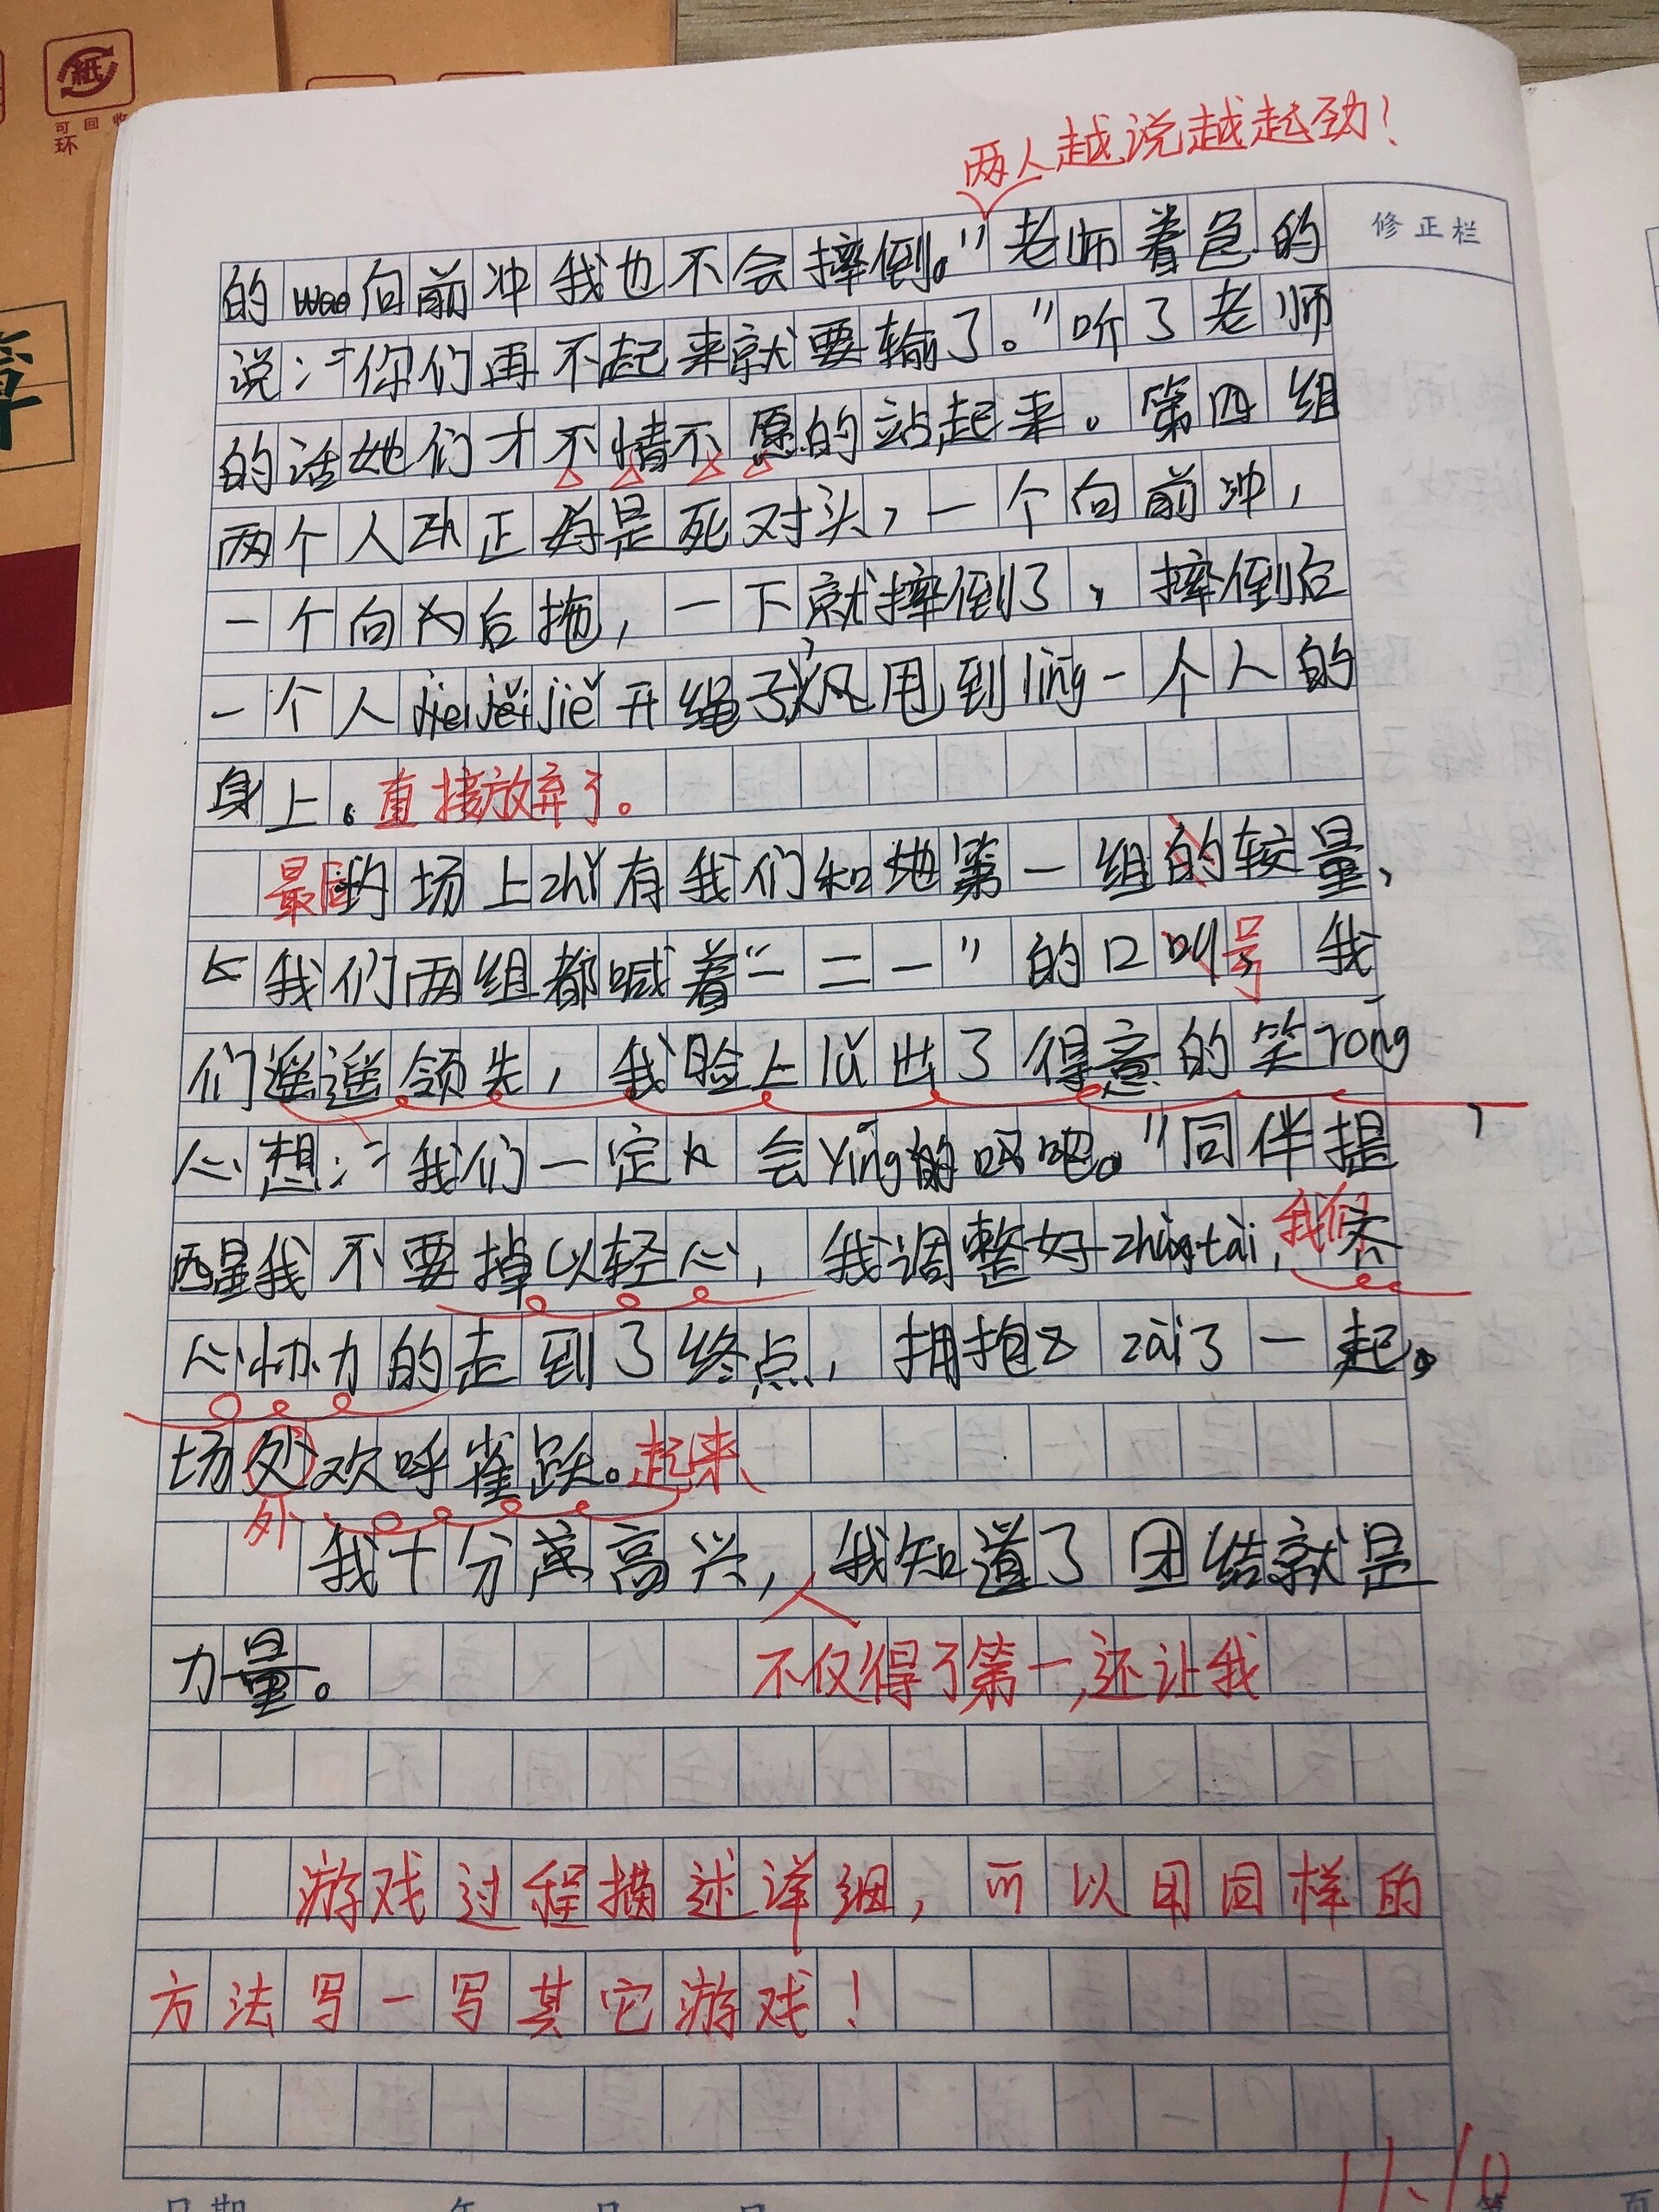 紙
可回收
环
两人越说越起劲！
修正栏
的wao向前冲我也不会摔倒。”老师着急的
说：“你们再不起来就要输了。”听了老师
的话她们才不情不愿的站起来。第四组
两个人zh正好是死对头，一个向前冲，
一个向为后拖，一下就摔倒了，摔倒后
一个人jiě开绳子甩到lìng一个人的
身上。直接放弃了。
最后的场上zhǐ有我们和她第一组的较量，
我们两组都喊着“一二一”的口叫号我
们遥遥领先，我脸上lù出了得意的笑róng，
心想：“我们一定会yíng的吗吧。”同伴提
醒我不要掉以轻心，我调整好zhuàngtài，我们齐
心协力的走到了终点，拥抱zài了一起。
场处欢呼雀跃。起来
外
我十分高兴，我知道了团结就是
力量。
不仅得了第一，还让我
游戏过程描述详细，可以用同样的
方法写一写其它游戏！
11.10
日期 年 月 日 第 页